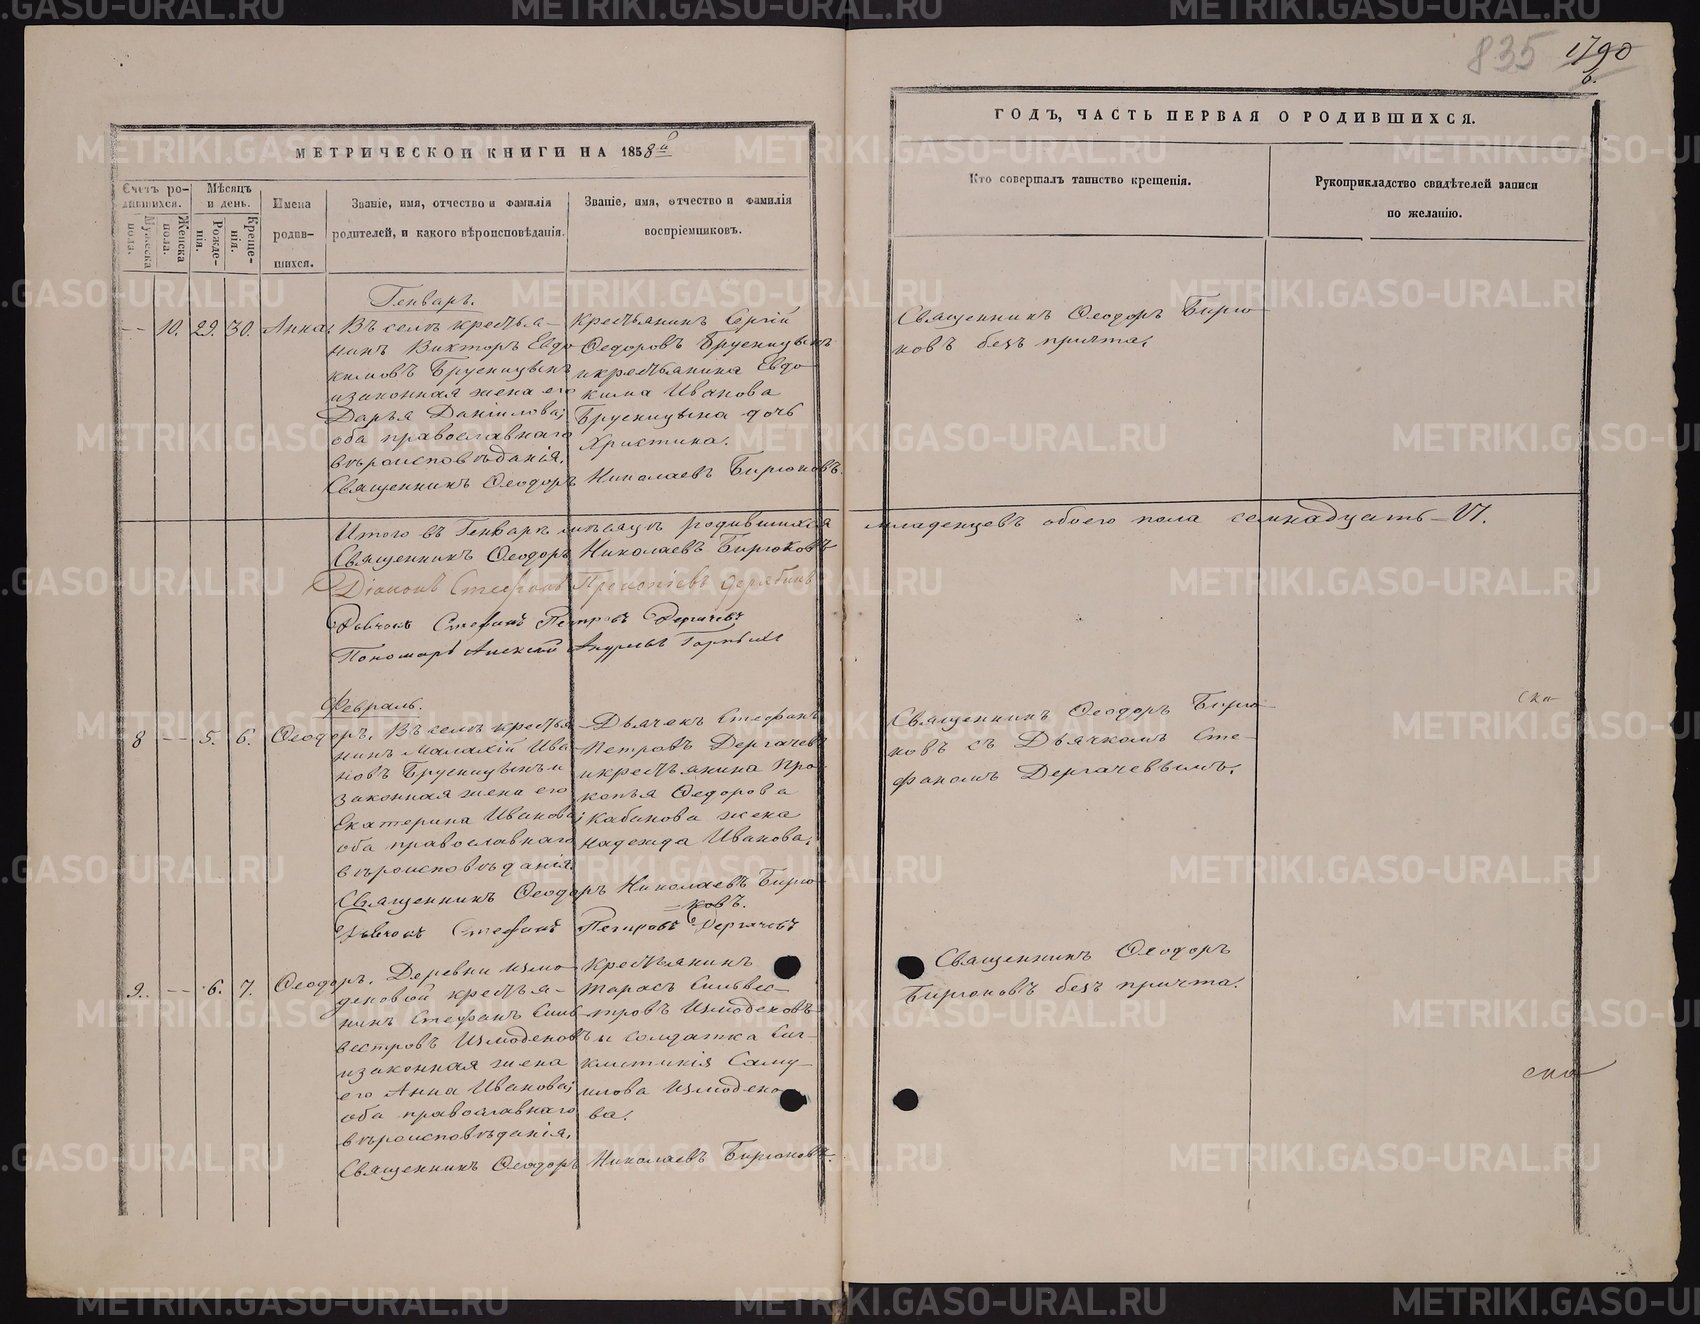 835 1790
6.
МЕТРИЧЕСКОЙ КНИГИ НА 1858й
ГОДЪ, ЧАСТЬ ПЕРВАЯ О РОДИВШИХСЯ.
Счетъ ро-
дившихся.
Мужеска пола.
Женска пола.
Мѣсяцъ
и день.
Рожде-
нія.
Креще-
нія.
Имена
родив-
шихся.
Званіе, имя, отчество и фамилія
родителей, и какого вѣроисповѣданія.
Званіе, имя, отчество и фамилія
воспріемниковъ.
Кто совершалъ таинство крещенія.
Рукоприкладство свидѣтелей записи
по желанію.
Генварь.
-- 10. 29. 30. Анна.
Въ селѣ крестья-
нинъ Викторъ Евдо
кимовъ Брусницынъ
и законная жена его
Дарья Даніилова;
оба православнаго
вѣроисповѣданія.
Крестьянинъ Сергій
Ѳедоровъ Брусницынъ
и крестьянина Евдо
кима Иванова
Брусницына дочь
Христина.
Священникъ Ѳеодоръ Николаевъ Бирюковъ.
Священникъ Ѳеодоръ Бирю-
ковъ безъ причта.
Итого въ Генварѣ мѣсяцѣ родившихся младенцевъ обоего пола семнадцать - 17.
Священникъ Ѳеодоръ Николаевъ Бирюковъ
Діаконъ Стефанъ Прокопіевъ Дерябинъ
Дьячокъ Стефанъ Петровъ Дергачевъ
Пономарь Алексій Андреевъ
Февраль.
8 -- 5. 6. Ѳеодоръ.
Въ селѣ крестья
нинъ Малахій Ива
новъ Брусницынъ и
законная жена его
Екатерина Иванова;
оба православнаго
вѣроисповѣданія.
Дьячекъ Стефанъ
Петровъ Дергачевъ
и крестьянина Про
копья Ѳедорова
Кабанова жена
Надежда Иванова.
Священникъ Ѳеодоръ Николаевъ Бирю-
ковъ.
Дьячокъ Стефанъ Петровъ Дергачевъ
Священникъ Ѳеодоръ Бирю-
ковъ съ Дьячкомъ Сте-
фаномъ Дергачевымъ.
9. -- 6. 7. Ѳеодоръ.
Деревни Измо-
деновой крестья-
нинъ Стефанъ Силь
вестровъ Измоденовъ
и законная жена
его Анна Иванова;
оба православнаго
вѣроисповѣданія.
Крестьянинъ
Тарасъ Сильве-
стровъ Измоденовъ
и солдатка Син-
клитикія Саму-
илова Измодено
ва.
Священникъ Ѳеодоръ Николаевъ Бирюковъ.
Священникъ Ѳеодоръ
Бирюковъ безъ причта.
METRIKI.GASO-URAL.RU